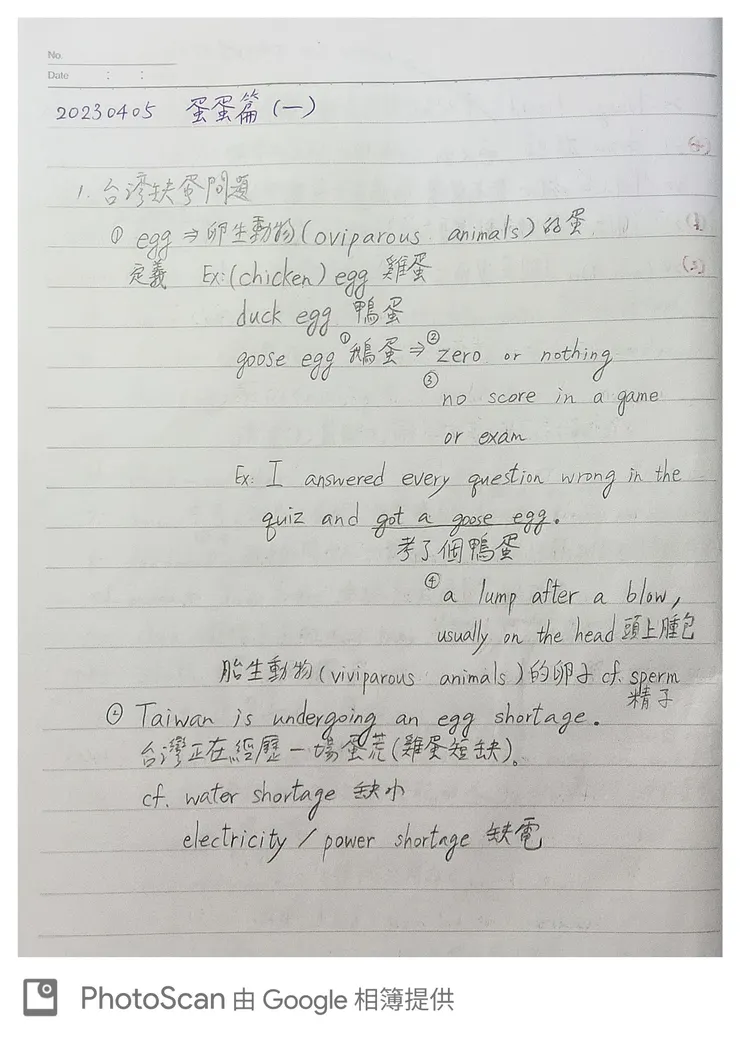 No.
Date : :
20230405 蛋蛋篇(一)
1. 台灣缺蛋問題
① egg ⇒ 卵生動物(oviparous animals)的蛋
定義 Ex:(chicken) egg 雞蛋
duck egg 鴨蛋
goose egg ①鵝蛋 ⇒ ②zero or nothing
③ no score in a game
or exam
Ex: I answered every question wrong in the
quiz and got a goose egg.
考了個鴨蛋
④ a lump after a blow,
usually on the head 頭上腫包
胎生動物(viviparous animals)的卵子 cf. sperm
精子
② Taiwan is undergoing an egg shortage.
台灣正在經歷一場蛋荒(雞蛋短缺)。
cf. water shortage 缺水
electricity / power shortage 缺電
PhotoScan 由 Google 相簿提供